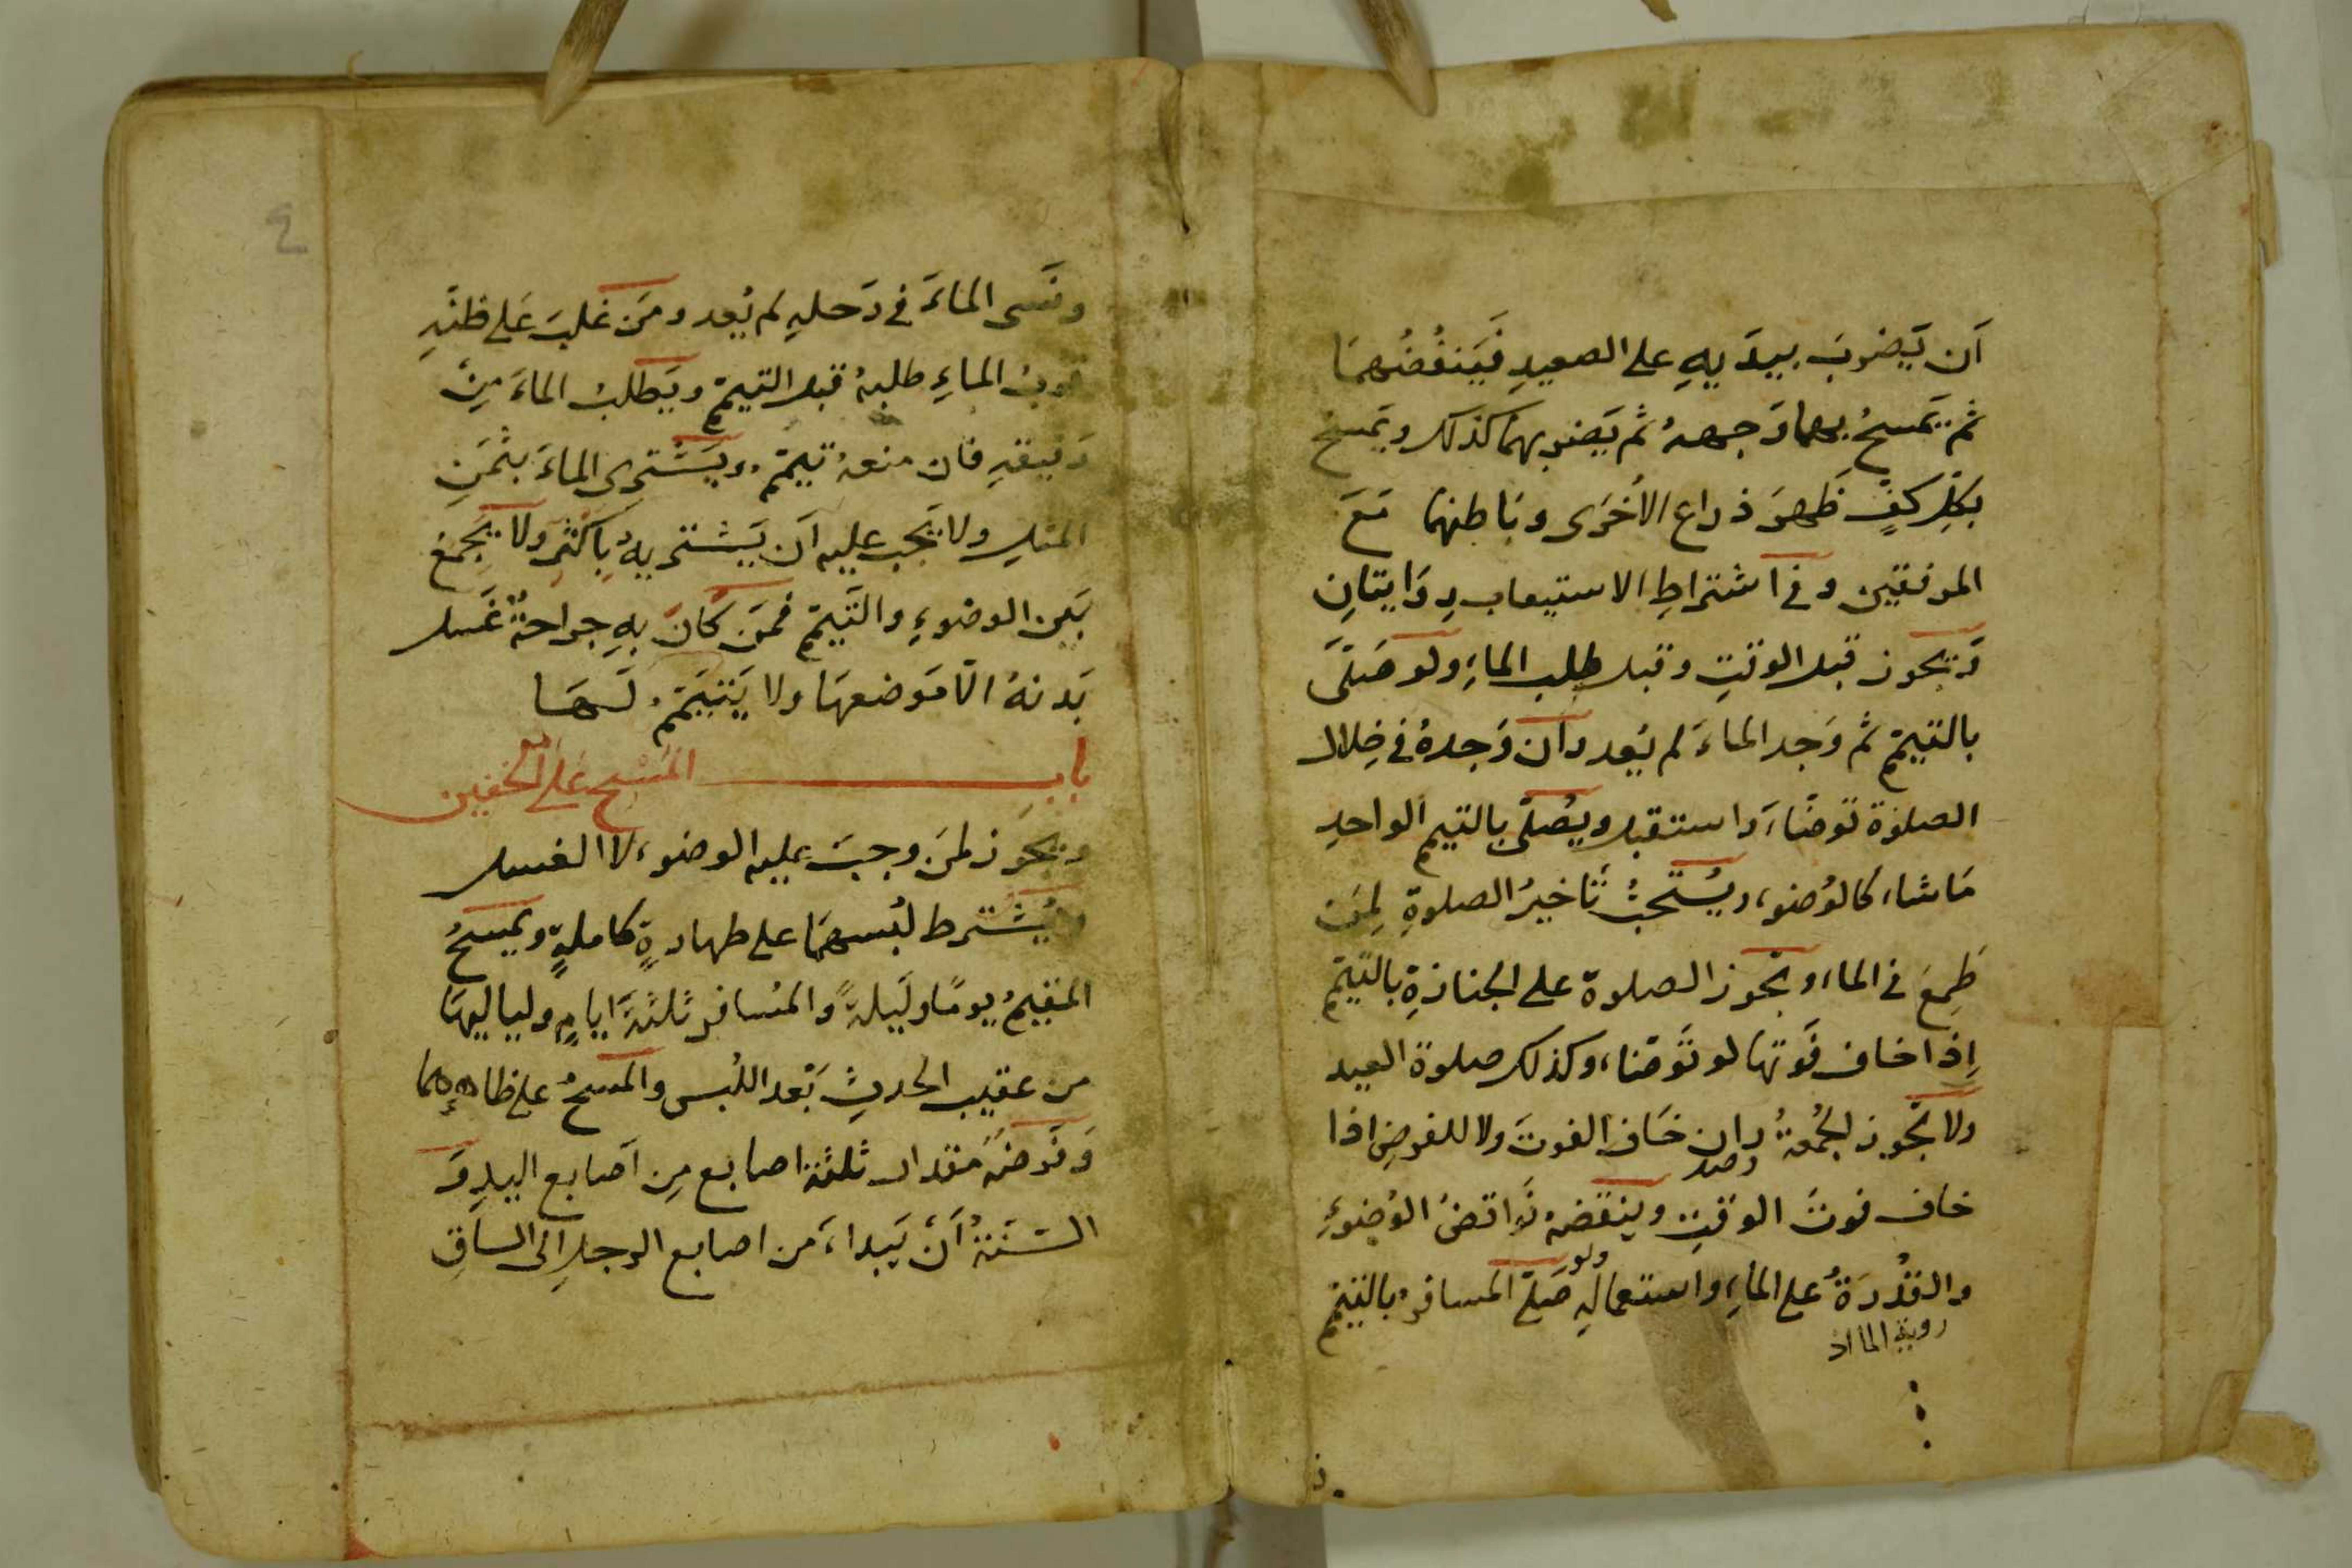 اَن يَضربَ بيدَيهِ على الصعيدِ فَيَنفُضُهمَا
ثم يَمسحُ بهما وَجههُ ثم يَضربهمَا كذلك ويَمسح
بكلِّ كفٍ ظَهرَ ذراع الأخرَى وبَاطنهَا مَعَ
المرفقين وفى اشتراطِ الاستيعاب رِوَايتانِ
وَيجوز قبل الوقتِ وقبل طلب الماءِ ولو صَلَّى
بالتيمّم ثم وَجد الماءَ لم يُعد وان وَجدهُ فى خِلال
الصلوٰة تَوضّاءَ واستقبل ويُصلّى بالتيمم الواحدِ
مَا شاء كالوُضوء ويُستَحبُّ تَاخيرُ الصلوةِ لِمَن
طَمِعَ فى الماء وتَجوز الصلوة على الجنازةِ بالتيمّم
إذا خاف فَوتهَا لو تَوضّاء وكذلك صلوة العيد
ولا تَجوز لِجُمعةُ وان خَاف الفوتَ ولا للفرضِ اذا
خاف فوتَ الوقتِ وينقضهُ نَواقضُ الوُضوءِ
والقُدرَةُ على الماءِ واستعمالِهِ ولو صَلّى المسافرُ بالتيمّم
روية الماء
ونَسى الماءَ فى رَحلهِ لم يُعد ومَن غلبَ عَلى ظنّهِ
قربُ الماءِ طلبهُ قبل التيمّم ويَطلبُ الماءَ مِنْ
رَفيقهِ فان منعهُ تيمّم ويَشترى الماءَ بثَمنِ
المثلِ ولا يَجب عليه اَن يَشتريهُ بِاكثرَ ولا يَجمعُ
بَين الوضوءِ والتَيمّم فمَن كَانَ بهِ جراحةٌ غَسل
بَدنهُ الّا مَوضعهَا ولا يَتيَمّمُ لَهَا
باب المَسْح عَلَى الخفين
ويجوَز لمَن وجبَ عليه الوضوء لا الغسل
ويُشترط لبُسهمَا على طهارةٍ كاملةٍ ويَمسحُ
المقيمُ يومًا ولَيلةً والمُسافر ثلثةَ ايامٍ ولياليهَا
من عقيب الحدثِ بَعد اللُبس والمَسحُ على ظاهرهما
وَفَرضهُ مقدار ثلثة اصابع مِن اَصابع اليدِ وَ
السُنّةُ اَنْ يَبداءَ من اصابع الرجلِ الى الساقِ